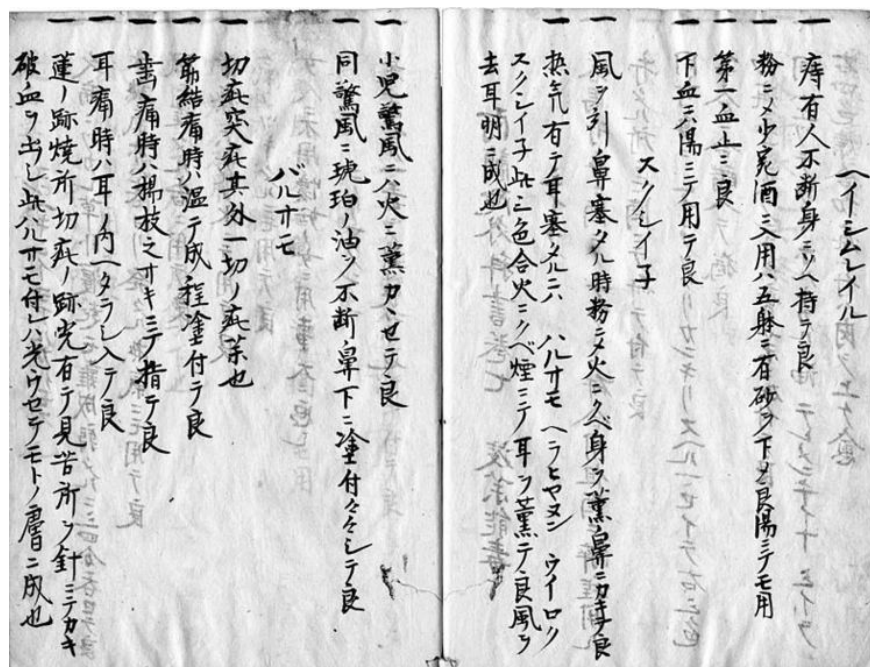 ヘイシムレイル
一 痔有人不断身ニソヘ持テ良
一 粉ニメ少宛酒ニ入用ハ五躰ニ有砂ヲ下メ良湯ニテモ用
一 第一血止ニ良
一 下血ニハ湯ニテ用テ良
スクシイ子
一 風ヲ引鼻塞タル時粉ニメ火ニクベ身ヲ薫鼻ニカキ良
一 熱気有テ耳塞タルニハ ハルサモ ヘラヒヤヌン ウイロク
スクシイ子此三色合火ニクベ煙ニテ耳ヲ薫テ良風ヲ
去耳明ニ成也
一 小児驚風ニハ火ニ薫カヽセテ良
一 同驚風ニ琥珀ノ油ヲ不断鼻下ニ塗付々々シテ良
バルサモ
一 切疵突疵其外一切ノ疵薬也
一 筋結痛時ハ温テ成程塗付テ良
一 歯痛時ハ楊枝之サキニテ指テ良
一 耳痛時ハ耳ノ内ヘタラシ入テ良
一 蓮ノ跡焼所切疵ノ跡光有テ見苦所ヲ針ニテカキ
破血ヲ出シ此バルサモ付レハ光ウセテモトノ膚ニ成也